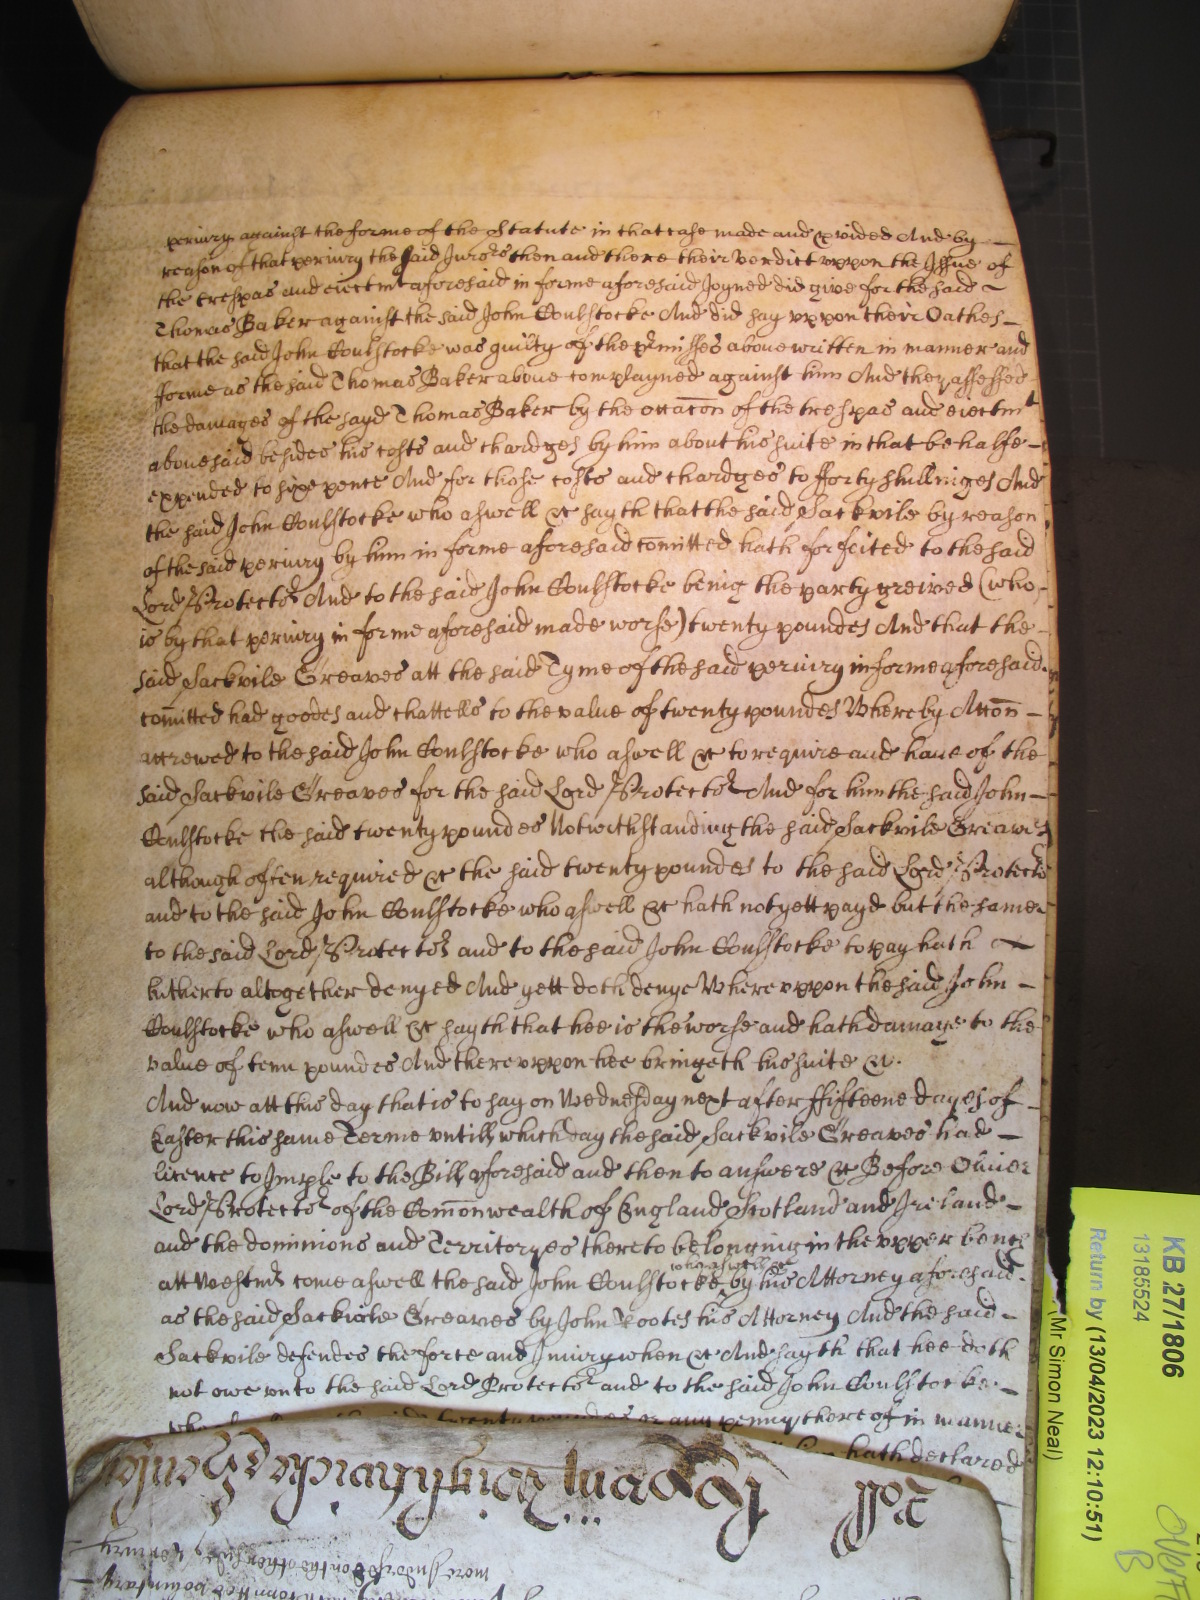 periury against the forme of the Statute in that case made and pvided And by
reason of that periury the said Juro:rs then and there their verdict vppon the Issue of
the trespas and eiectmt aforesaid in forme aforesaid Joyned did give for the said
Thomas Baker against the said John Coulstocke And did say vppon their Oathes
that the said John Coulstocke was guilty of the pmisses above written in manner and
fforme as the said Thomas Baker above complayned against him And they assessed
the damages of the sayd Thomas Baker by the occacōn of the trespas and eiectmt
abovesaid besides his costs and chardges by him about his suite in that behalfe
expended to sixe pence And for those costs and chardges to fforty shillinges And
the said John Coulstocke who aswell &c sayth that the said Sackvile by reason
of the said periury by him in forme aforesaid cōmitted hath forfeited to the said
Lord Protector And to the said John Coulstocke being the party greived (who
is by that periury in forme aforesaid made worse) twenty poundes And that the
said Sackvile Greaves att the said Tyme of the said periury in forme aforesaid
cōmitted had goodes and chattells to the value of twenty poundes Whereby Accōn
accrewed to the said John Coulstocke who aswell &c to require and haue of the
said Sackvile Greaves for the said Lord Protector And for him the said John
Coulstocke the said twenty poundes Notwithstanding the said Sackvile Greaves
although often required &c the said twenty poundes to the said Lord Protector
and to the said John Coulstocke who aswell &c hath not yett payd but the same
to the said Lord Protector and to the said John Coulstocke to pay hath
hitherto altogether denyed And yett doth denye Wherevppon the said John
Coulstocke who aswell &c sayth that hee is the worse and hath damage to the
value of tenn poundes And therevppon hee bringeth his suite &c.
And now att this day that is to say on Wednesday next after ffifteene dayes of
Easter this same Terme vntill which day the said Sackvile Greaves had
licence to Imple to the Bill aforesaid and then to answere &c Before Oliuer
Lord Protector of the Cōmonwealth of England Scotland and Ireland
and the dominions and Territoryes thereto belonging in the vpper bench
who aswell &c
att Westmr come aswell the said John Coulstocke by his Attorney aforesaid
as the said Sackvile Greaves by John Rootes his Attorney And the said
Sackvile defendes the force and Iniury when &c And sayth that hee doth
not owe vnto the said Lord Protector and to the said John Coulstocke
twenty poundes or any penny thereof in manner
hath declared
KB 27/1806
13185524
Return by (13/04/2023 12:10:51)
(Mr Simon Neal)